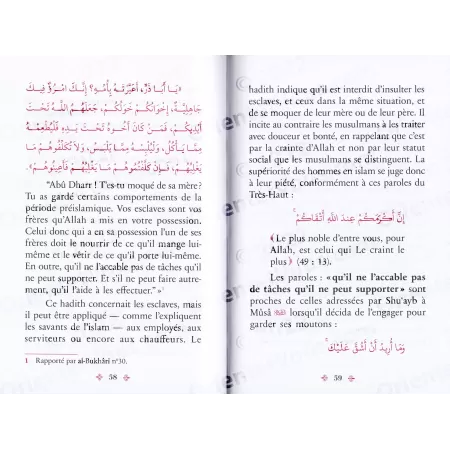 «يَا أَبَا ذَرٍّ، أَعَيَّرْتَهُ بِأُمِّهِ؟ إِنَّكَ امْرُؤٌ فِيكَ
جَاهِلِيَّةٌ، إِخْوَانُكُمْ خَوَلُكُمْ، جَعَلَهُمُ اللَّهُ تَحْتَ
أَيْدِيكُمْ، فَمَنْ كَانَ أَخُوهُ تَحْتَ يَدِهِ فَلْيُطْعِمْهُ
مِمَّا يَأْكُلُ، وَلْيُلْبِسْهُ مِمَّا يَلْبَسُ، وَلَا تُكَلِّفُوهُمْ مَا
يَغْلِبُهُمْ، فَإِنْ كَلَّفْتُمُوهُمْ مَا يَغْلِبُهُمْ فَأَعِينُوهُمْ».
"Abû Dharr ! T'es-tu moqué de sa mère?
Tu as gardé certains comportements de la
période préislamique. Vos esclaves sont vos
frères qu'Allah a mis en votre possession.
Celui donc qui a en sa possession l'un de ses
frères doit le nourrir de ce qu'il mange lui-
même et le vêtir de ce qu'il porte lui-même.
En outre, qu'il ne l'accable pas de tâches qu'il
ne peut supporter. Et s'il ne peut faire autre-
ment, qu'il l'aide à les effectuer."¹
Ce hadith concernait les esclaves, mais
il peut être appliqué — comme l'expliquent
les savants de l'islam — aux employés, aux
serviteurs ou encore aux chauffeurs. Le
1 Rapporté par al-Bukhârî n°30.
58
hadith indique qu'il est interdit d'insulter les
esclaves, et ceux dans la même situation, et
de se moquer de leur mère ou de leur père. Il
incite au contraire les musulmans à les traiter
avec douceur et bonté, en rappelant que c'est
par la crainte d'Allah et non par leur statut
social que les musulmans se distinguent. La
supériorité des hommes en islam se juge donc
à leur piété, conformément à ces paroles du
Très-Haut :
إِنَّ أَكْرَمَكُمْ عِنْدَ اللَّهِ أَتْقَاكُمْ
﴾Le plus noble d'entre vous, pour
Allah, est celui qui Le craint le
plus﴿ (49 : 13).
Les paroles : «qu'il ne l'accable pas
de tâches qu'il ne peut supporter» sont
proches de celles adressées par Shu'ayb à
Mûsâ lorsqu'il décida de l'engager pour
garder ses moutons :
وَمَا أُرِيدُ أَنْ أَشُقَّ عَلَيْكَ
59